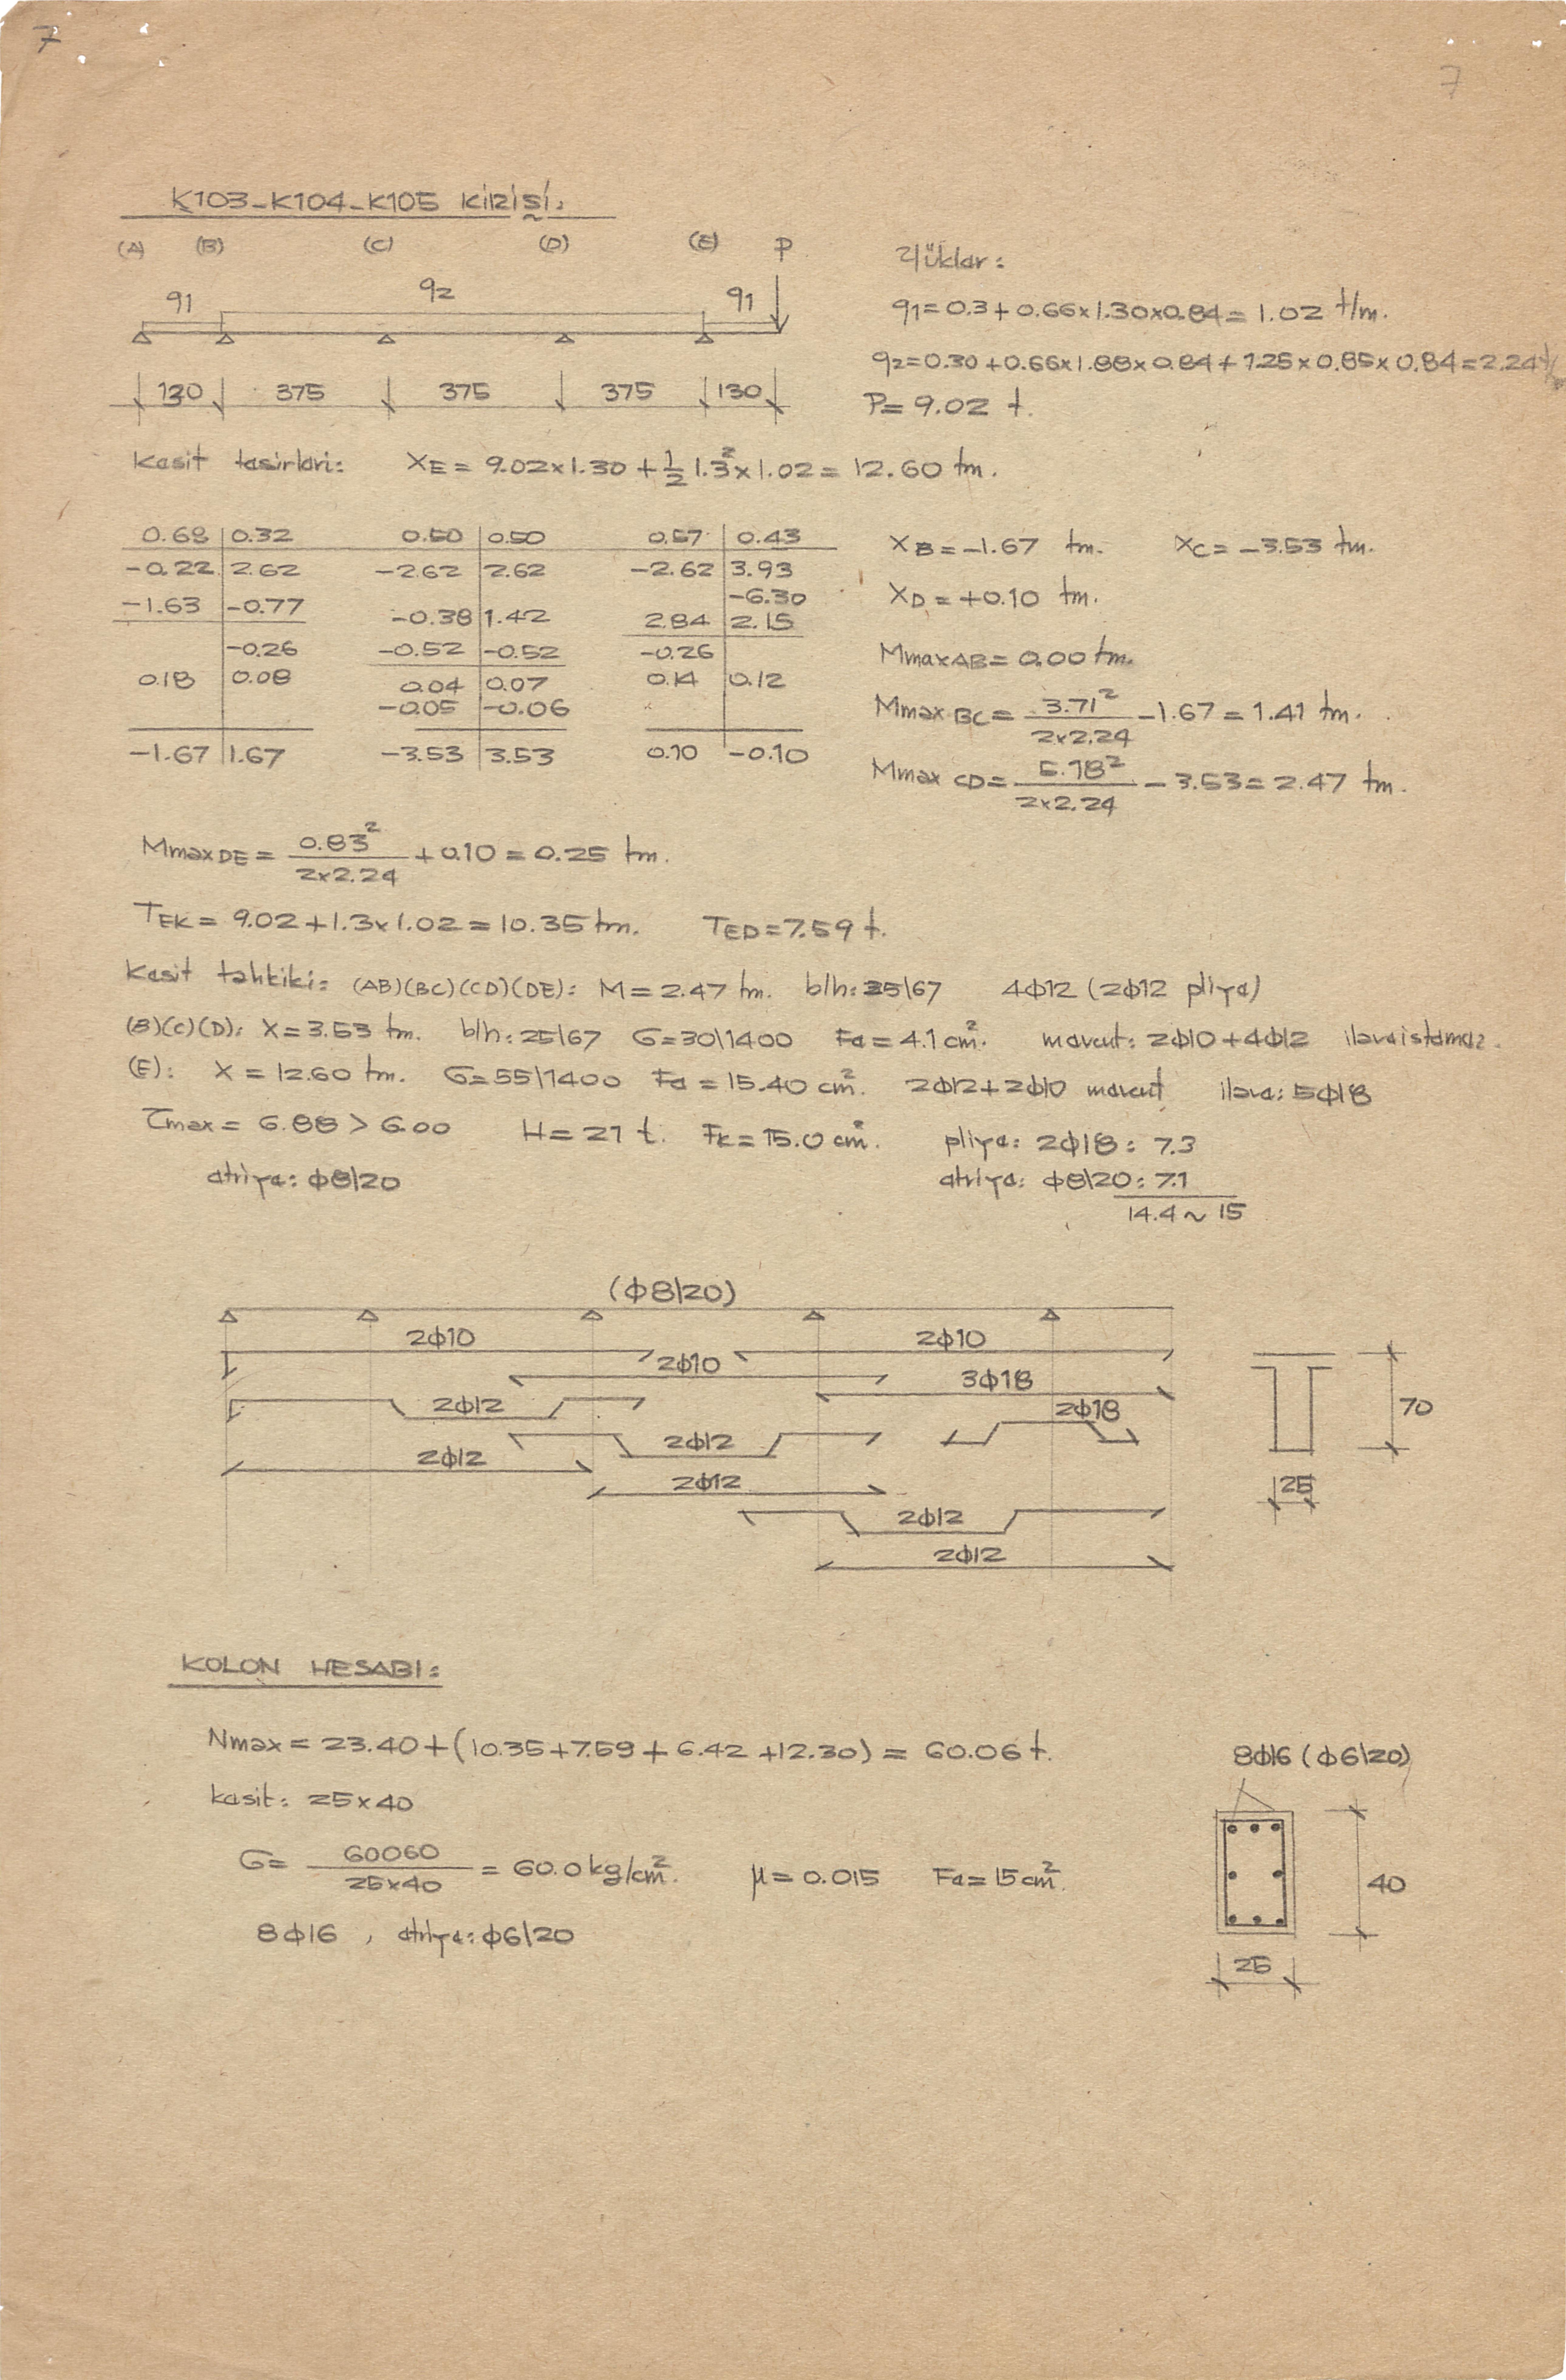 7
7
K103-K104-K105 KİRİŞİ:
(A) (B) (C) (D) (E) P
q1 q2 q1
130 375 375 375 130
Yükler:
q1=0.3+0.66x1.30x0.84=1.02 t/m.
q2=0.30+0.66x1.88x0.84+1.25x0.85x0.84=2.24 t/
P=9.02 t.
Kesit tesirleri: XE=9.02x1.30+½1.3²x1.02=12.60 tm.
0.68 0.32 0.50 0.50 0.57 0.43
-0.22 2.62 -2.62 2.62 -2.62 3.93
-6.30
-1.63 -0.77 -0.38 1.42 2.84 2.15
-0.26 -0.52 -0.52 -0.26
0.18 0.08 0.04 0.07 0.14 0.12
-0.05 -0.06
-1.67 1.67 -3.53 3.53 0.10 -0.10
XB=-1.67 tm. XC=-3.53 tm.
XD=+0.10 tm.
MmaxAB=0.00 tm.
Mmax BC= 3.71²/2x2.24 -1.67=1.41 tm.
Mmax CD= 5.18²/2x2.24 -3.53=2.47 tm.
MmaxDE= 0.83²/2x2.24 +0.10=0.25 tm.
TEK=9.02+1.3x1.02=10.35 tm. TED=7.59 t.
Kesit tahkiki: (AB)(BC)(CD)(DE): M=2.47 tm. b/h:25\67 4Φ12 (2Φ12 pliye)
(B)(C)(D): X=3.53 tm. b/h:25\67 G=30\1400 Fe=4.1 cm². mevcut: 2Φ10+4Φ12 ilave istemez.
(E): X=12.60 tm. G=55\1400 Fe=15.40 cm². 2Φ12+2Φ10 mevcut ilave: 5Φ18
τmax=6.88>6.00 H=21 t. Fk=15.0 cm². pliye: 2Φ18: 7.3
etriye: Φ8\20 etriye: Φ8\20: 7.1
14.4~15
(Φ8\20)
2Φ10 2Φ10
2Φ10
3Φ18
2Φ12 2Φ18
2Φ12
2Φ12
2Φ12
2Φ12
2Φ12
70
25
KOLON HESABI:
Nmax=23.40+(10.35+7.59+6.42+12.30)=60.06 t.
kesit: 25x40
G= 60060/25x40 =60.0 kg/cm². μ=0.015 Fe=15 cm².
8Φ16, etriye: Φ6\20
8Φ16 (Φ6\20)
40
25